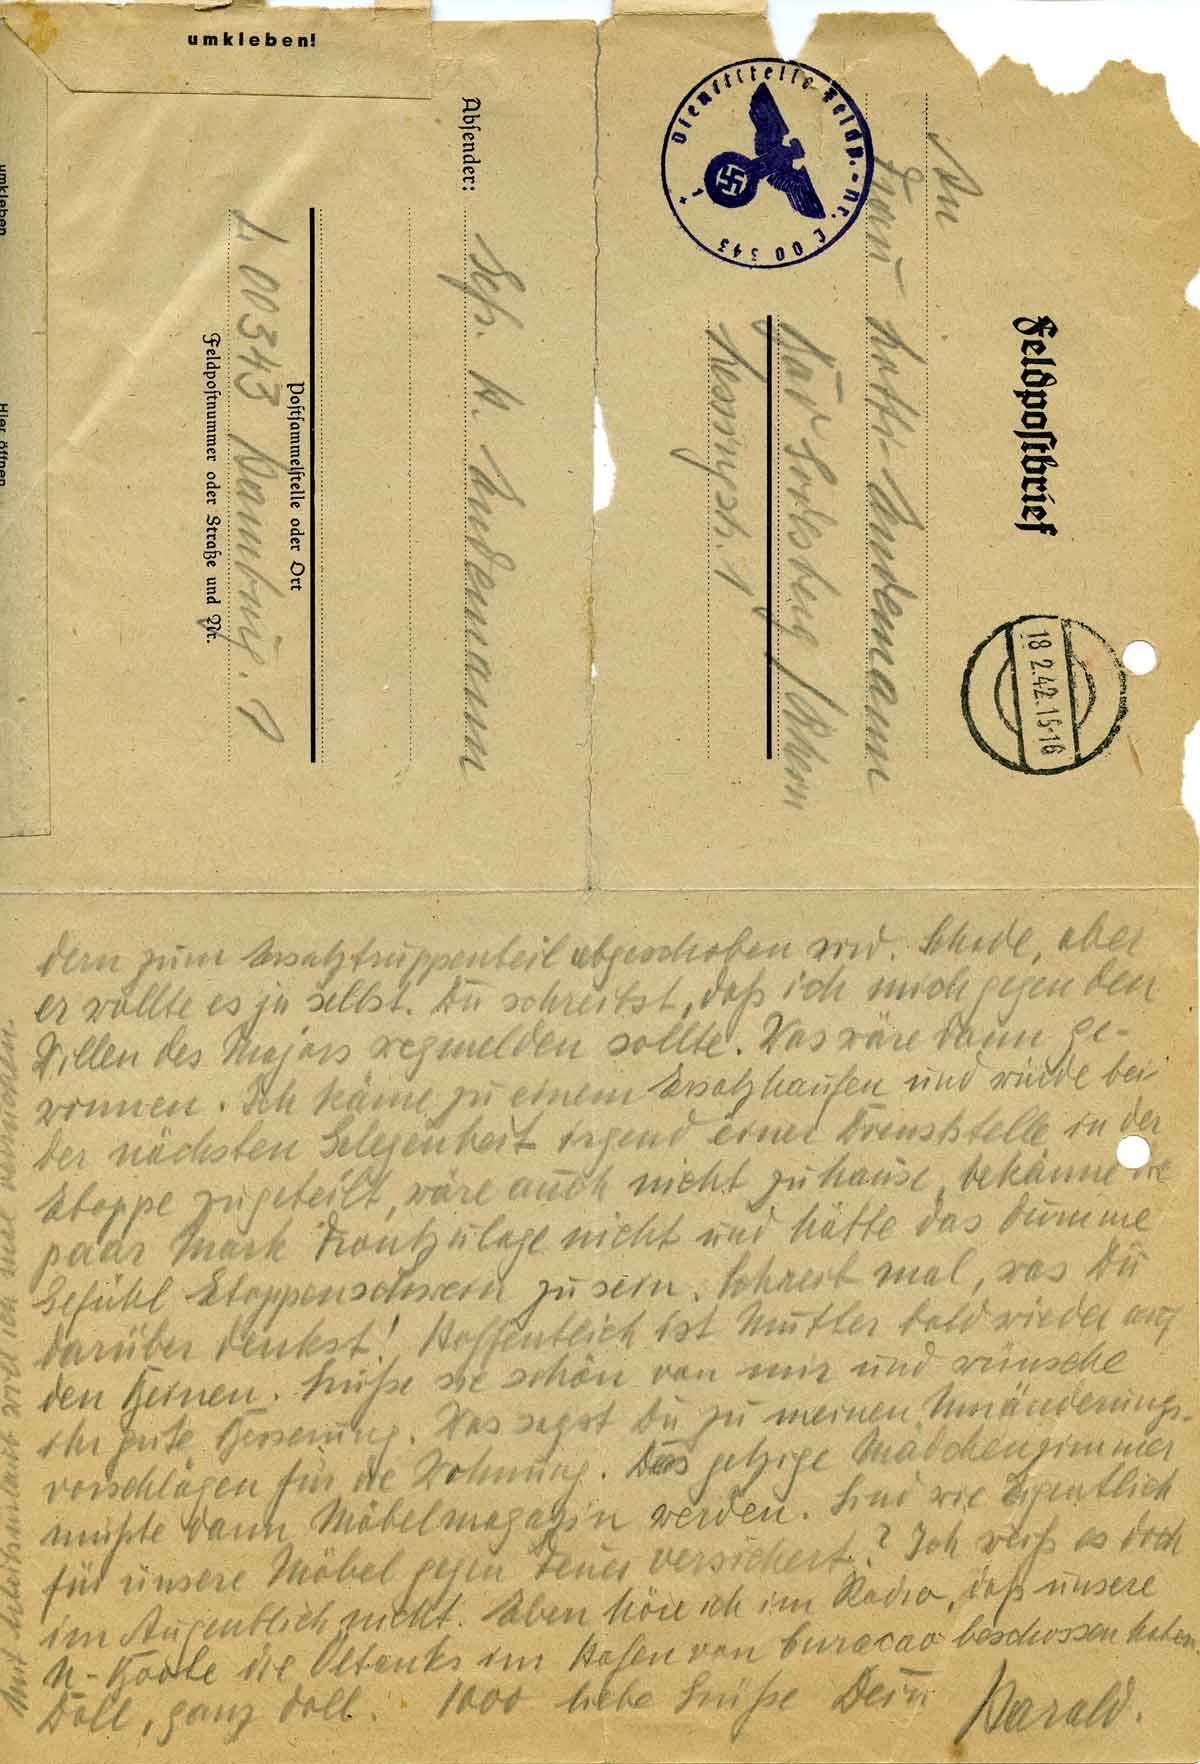 umkleben!
umkleben
Hier öffnen
Feldpostbrief
Dienststelle Feldp.-Nr. L 00 343
18 2.42.15-16
An
Frau Lotti Lindemann
Bad Godesberg / Rhein
Lessingstr. 1
Absender:
Gefr. H. Lindemann
Postsammelstelle oder Ort
L 00343 Hamburg. 1
Feldpostnummer oder Straße und Nr.
dern zum Ersatztruppenteil abgeschoben wird. Schade, aber
er wollte es ja selbst. Du schreibst, daß ich mich gegen den
Willen des Majors wegmelden sollte. Was wäre dann ge-
wonnen. Ich käme zu einem Ersatzhaufen und würde bei
der nächsten Gelegenheit irgend einer Dienststelle in der
Etappe zugeteilt, wäre auch nicht zuhause, bekäme die
paar Mark Frontzulage nicht und hätte das dumme
Gefühl Etappenschwein zu sein. Schreib mal, was Du
darüber denkst! Hoffentlich ist Mutter bald wieder auf
den Beinen. Grüße sie schön von mir und wünsche
ihr gute Besserung. Was sagst Du zu meinen Umänderungs-
vorschlägen für die Wohnung. Das jetzige Mädchenzimmer
müßte dann Möbelmagazin werden. Sind wir eigentlich
für unsere Möbel gegen Feuer versichert? Ich weiß es doch
im Augenblick nicht. Eben höre ich im Radio, daß unsere
U-Boote die Öltanks im Hafen von Curacao beschossen haben
Doll, ganz doll! 1000 liebe Grüße Dein Harald.
Mit Arbeitsurlaub will ich mal versuchen.